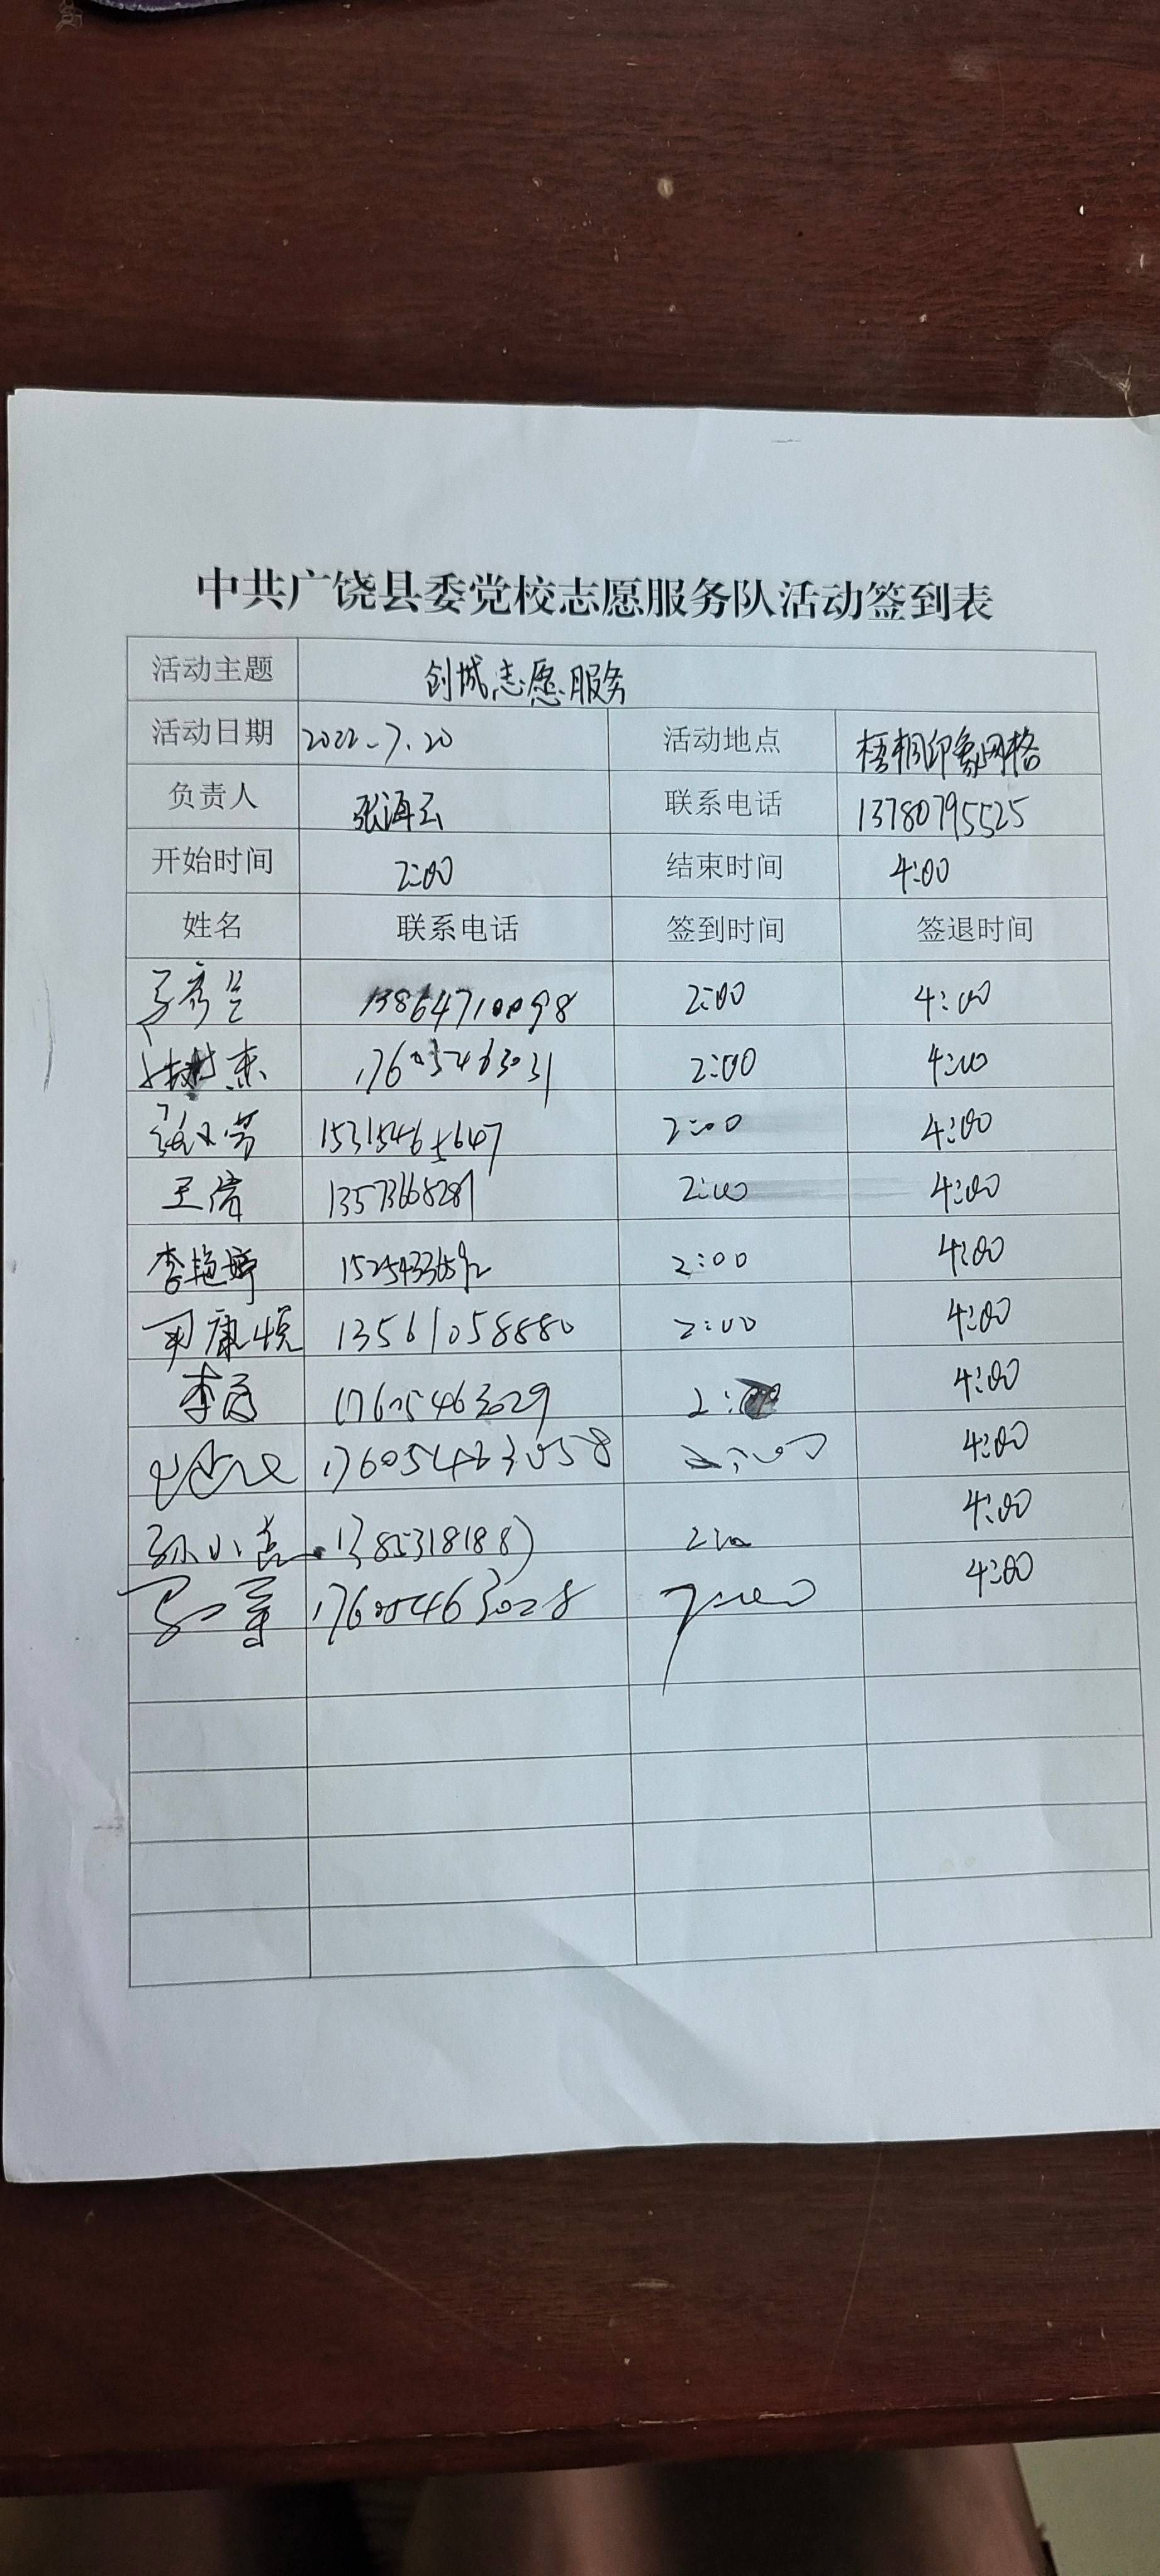 中共广饶县委党校志愿服务队活动签到表
活动主题 创城志愿服务
活动日期 2022.7.20 活动地点 梧桐印象网格
负责人 张海云 联系电话 13780795525
开始时间 2:00 结束时间 4:00
姓名 联系电话 签到时间 签退时间
13864710098 2:00 4:00
17605463031 2:00 4:00
15315465647 2:00 4:00
王倩 13573668289 2:00 4:00
李艳婷 2:00 4:00
康悦 13561058880 2:00 4:00
李 17605463029 2:00 4:00
17605463058 2:00 4:00
孙小 2:00 4:00
17605463028 2:00 4:00